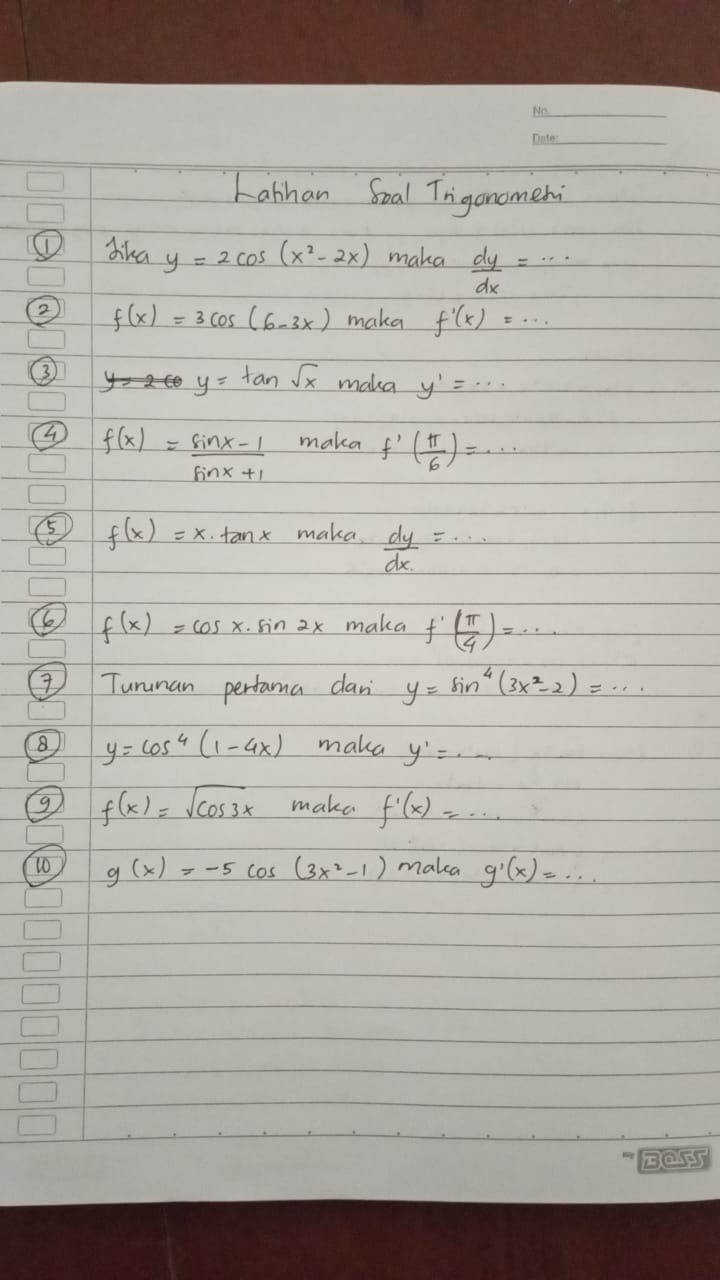 No.
Date:
Latihan Soal Trigonometri
① Jika y = 2 cos (x² - 2x) maka dy/dx = ...
② f(x) = 3 cos (6-3x) maka f'(x) = ...
③ ~~y = 2 co~~ y = tan √x maka y' = ...
④ f(x) = (sin x - 1)/(sin x + 1) maka f' (π/6) = ...
⑤ f(x) = x . tan x maka dy/dx. = ...
⑥ f(x) = cos x. sin 2x maka f' (π/4) = ...
⑦ Turunan pertama dari y = sin⁴ (3x² - 2) = ...
⑧ y = cos⁴ (1 - 4x) maka y' = ...
⑨ f(x) = √(cos 3x) maka f'(x) = ...
⑩ g(x) = -5 cos (3x² - 1) maka g'(x) = ...
My BOSS